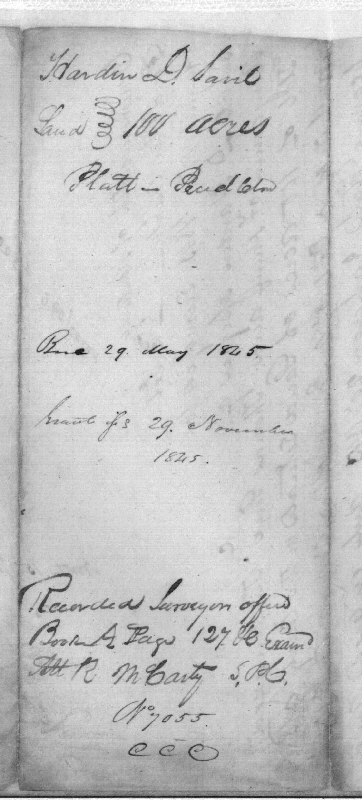 Hardin D. Cavil
Land 100 acres
Platt in Pendleton
Rec 29 May 1845
Grant iss 29. November
1845.
Recorded Surveyors office
Book A Page 127 & Exam'd
Att R McCarty S.P.C.
No 7055.